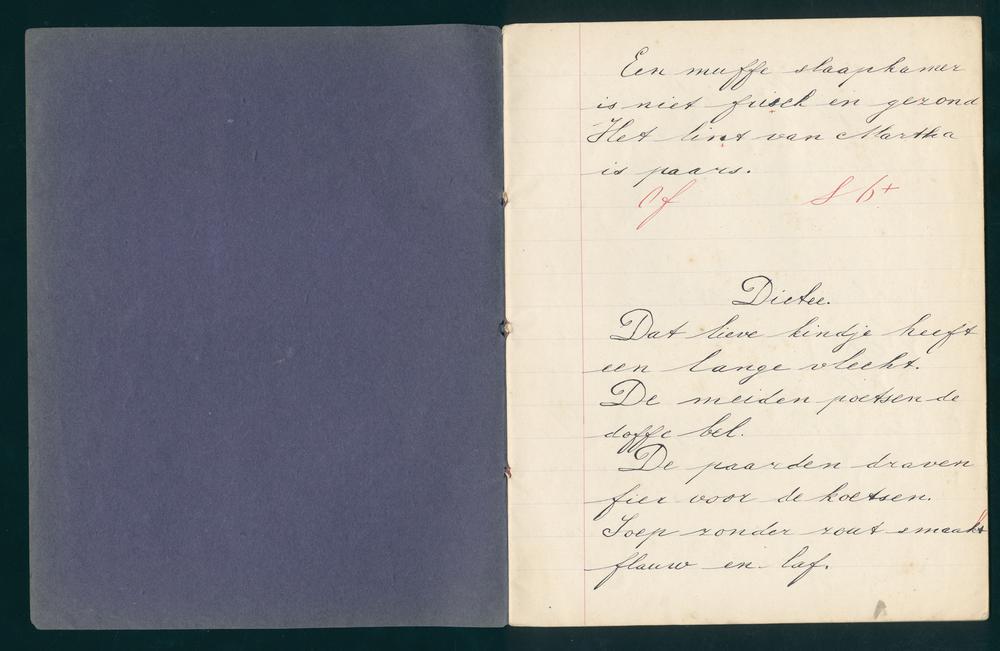 Een muffe slaapkamer
is niet frisch en gezond
Het lint van Martha
is paars.
Of 8 b+
Dictee.
Dat lieve kindje heeft
een lange vlecht.
De meiden poetsen de
doffe bel.
De paarden draven
fier voor de koetsen.
Soep zonder zout smaakt
flauw en laf.